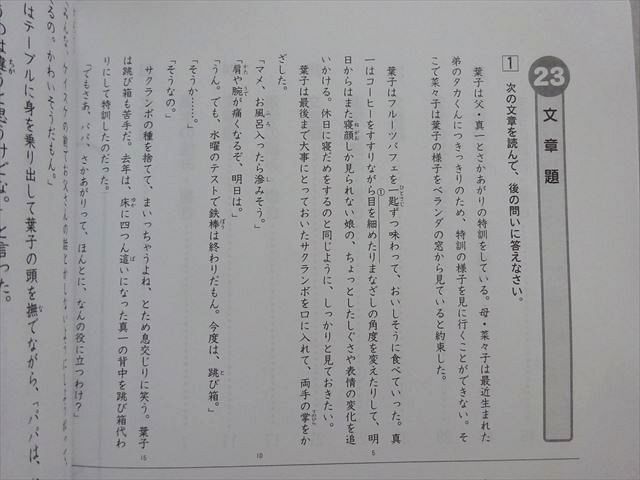 23 文章題
1 次の文章を読んで、後の問いに答えなさい。
葉子は父・真一とさかあがりの特訓をしている。母・菜々子は最近生まれた
弟のタカくんにつきっきりのため、特訓の様子を見に行くことができない。そ
こで菜々子は葉子の様子をベランダの窓から見ていると約束した。
葉子はフルーツパフェを一匙ずつ味わって、おいしそうに食べていった。真
一はコーヒーをすすりながら①目を細めたりまなざしの角度を変えたりして、明
日からはまた寝顔しか見られない娘の、ちょっとしたしぐさや表情の変化を追
いかける。休日に寝だめをするのと同じように、しっかりと見ておきたい。
葉子は最後まで大事にとっておいたサクランボを口に入れて、両手の掌をか
ざした。
「マメ、お風呂入ったら滲みそう。」
「肩や腕が痛くなるぞ、明日は。」
「うん。でも、水曜のテストで鉄棒は終わりだもん。今度は、跳び箱。」
「そうか……。」
「そうなの。」
サクランボの種を捨てて、まいっちゃうよね、とため息交じりに笑う。葉子
は跳び箱も苦手だ。去年は、床に四つん這いになった真一の背中を跳び箱代わ
りにして特訓したのだった。
「でもさあ、パパ、さかあがりって、ほんとに、なんの役に立つわけ？」
5
10
15
はテーブルに身を乗り出して葉子の頭を撫でながら、「パパは、